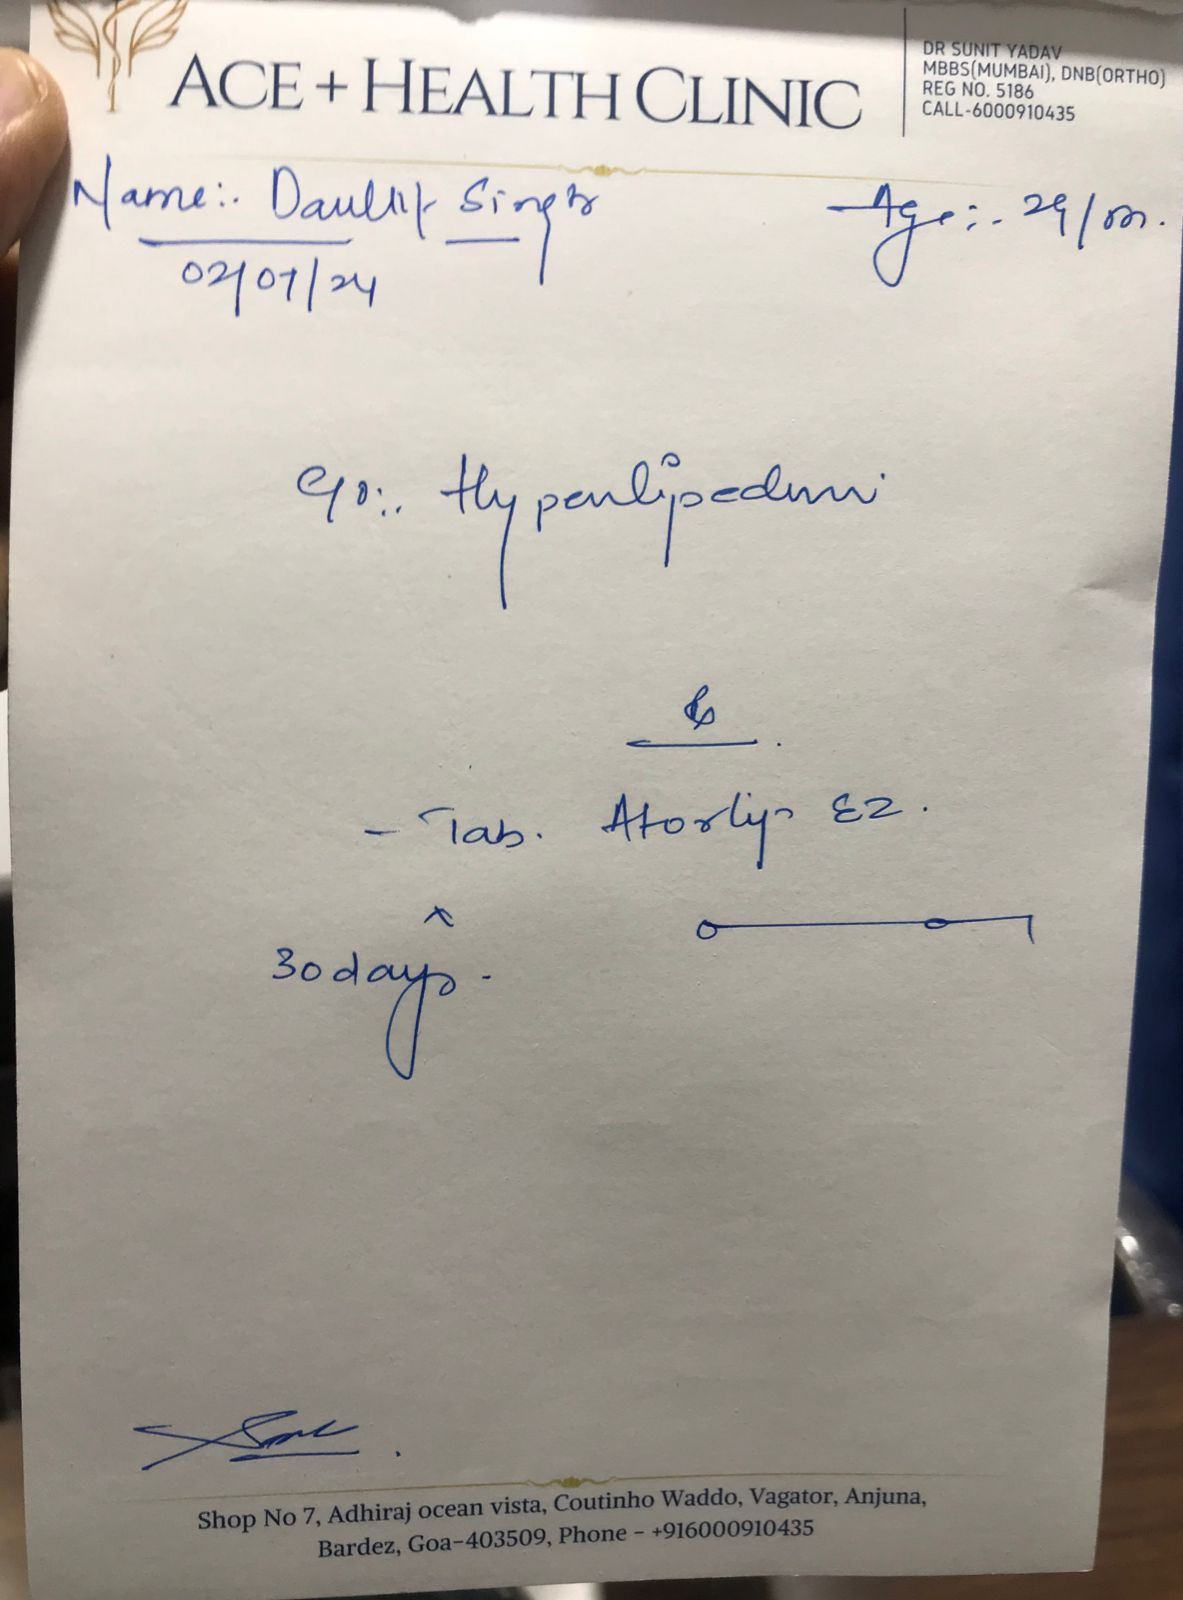 ACE + HEALTH CLINIC
DR SUNIT YADAV
MBBS(MUMBAI), DNB(ORTHO)
REG NO. 5186
CALL-6000910435
Name:. Singh
Age:. 29/m.
02/07/24
Tab. Atorlip EZ.
x
30 days.
Shop No 7, Adhiraj ocean vista, Coutinho Waddo, Vagator, Anjuna,
Bardez, Goa-403509, Phone - +916000910435